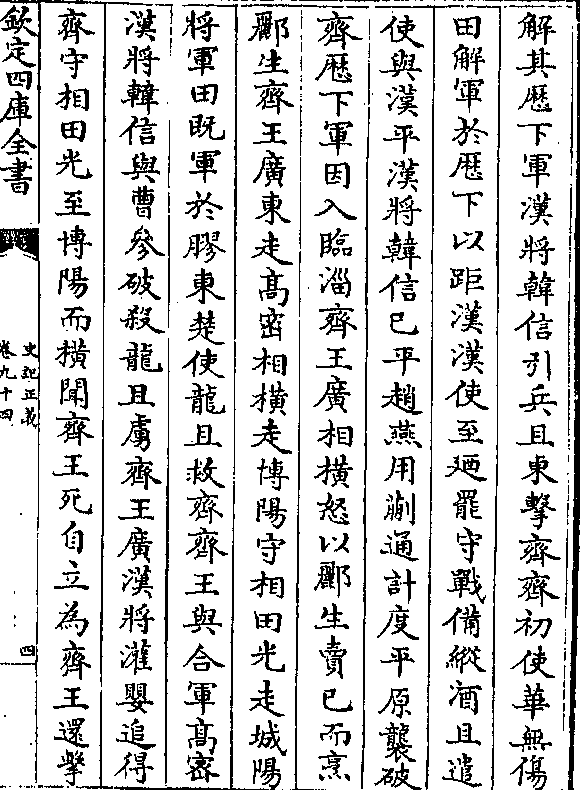 解其歴下軍漢將韓信引兵且東擊齊齊初使華無傷
田解軍於歴下以距漢漢使至廼罷守戰備縱酒且遣
使與漢平漢將韓信已平趙燕用蒯通計度平原襲破
齊歴下軍因入臨淄齊王廣相横怒以酈生賣已而烹
酈生齊王廣東走髙宻相横走博陽守相田光走城陽
將軍田既軍於膠東楚使龍且救齊齊王與合軍髙宻
漢將韓信與曹參破殺龍且虜齊王廣漢將灌嬰追得
齊守相田光至博陽而横聞齊王死自立為齊王還擊
欽定四庫全書
史記正義
卷九十四
四